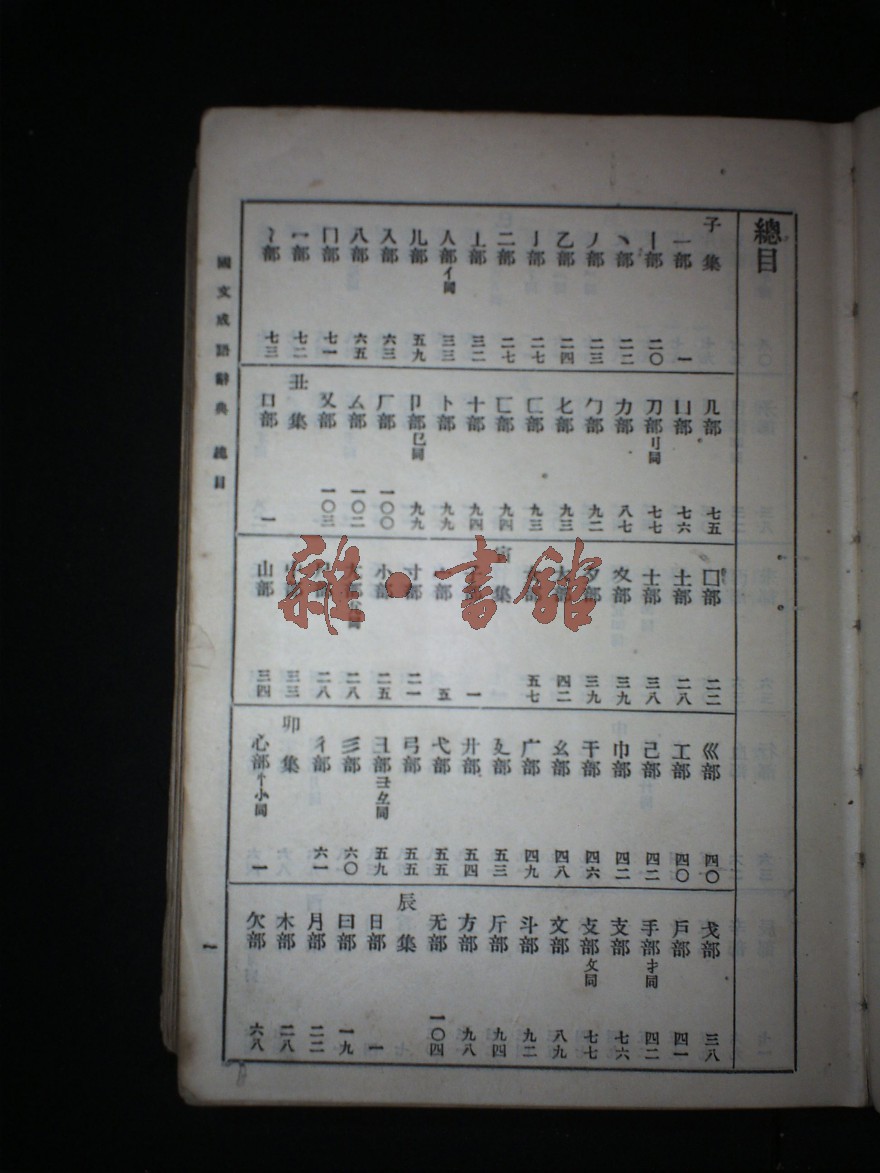 總目
子集
一部 一
丨部 二〇
丶部 二二
丿部 二三
乙部 二四
亅部 二七
二部 二七
亠部 三二
人部亻同 三三
儿部 五九
入部 六三
八部 六五
冂部 七一
冖部 七二
冫部 七三
几部 七五
凵部 七六
刀部刂同 七七
力部 八七
勹部 九二
匕部 九三
匚部 九三
匸部 九四
十部 九四
卜部 九九
卩部㔾同 九九
厂部 一〇〇
厶部 一〇二
又部 一〇三
丑集
口部 一
囗部 二二
土部 二八
士部 三八
夊部 三九
夕部 三九
大部 四二
五七
寅集
一
五
寸部 二一
小部 二五
二八
二八
三三
山部 三四
巛部 四〇
工部 四〇
己部 四二
巾部 四二
干部 四六
幺部 四八
广部 四九
廴部 五三
廾部 五四
弋部 五五
弓部 五五
彐部彑同 五九
彡部 六〇
彳部 六一
卯集
心部忄㣺同 一
戈部 三八
戶部 四一
手部扌同 四二
支部 七六
攴部攵同 七七
文部 八九
斗部 九二
斤部 九四
方部 九八
无部 一〇四
辰集
日部 一
曰部 一九
月部 二二
木部 二八
欠部 六八
國文成語辭典 總目
一
雜·書館